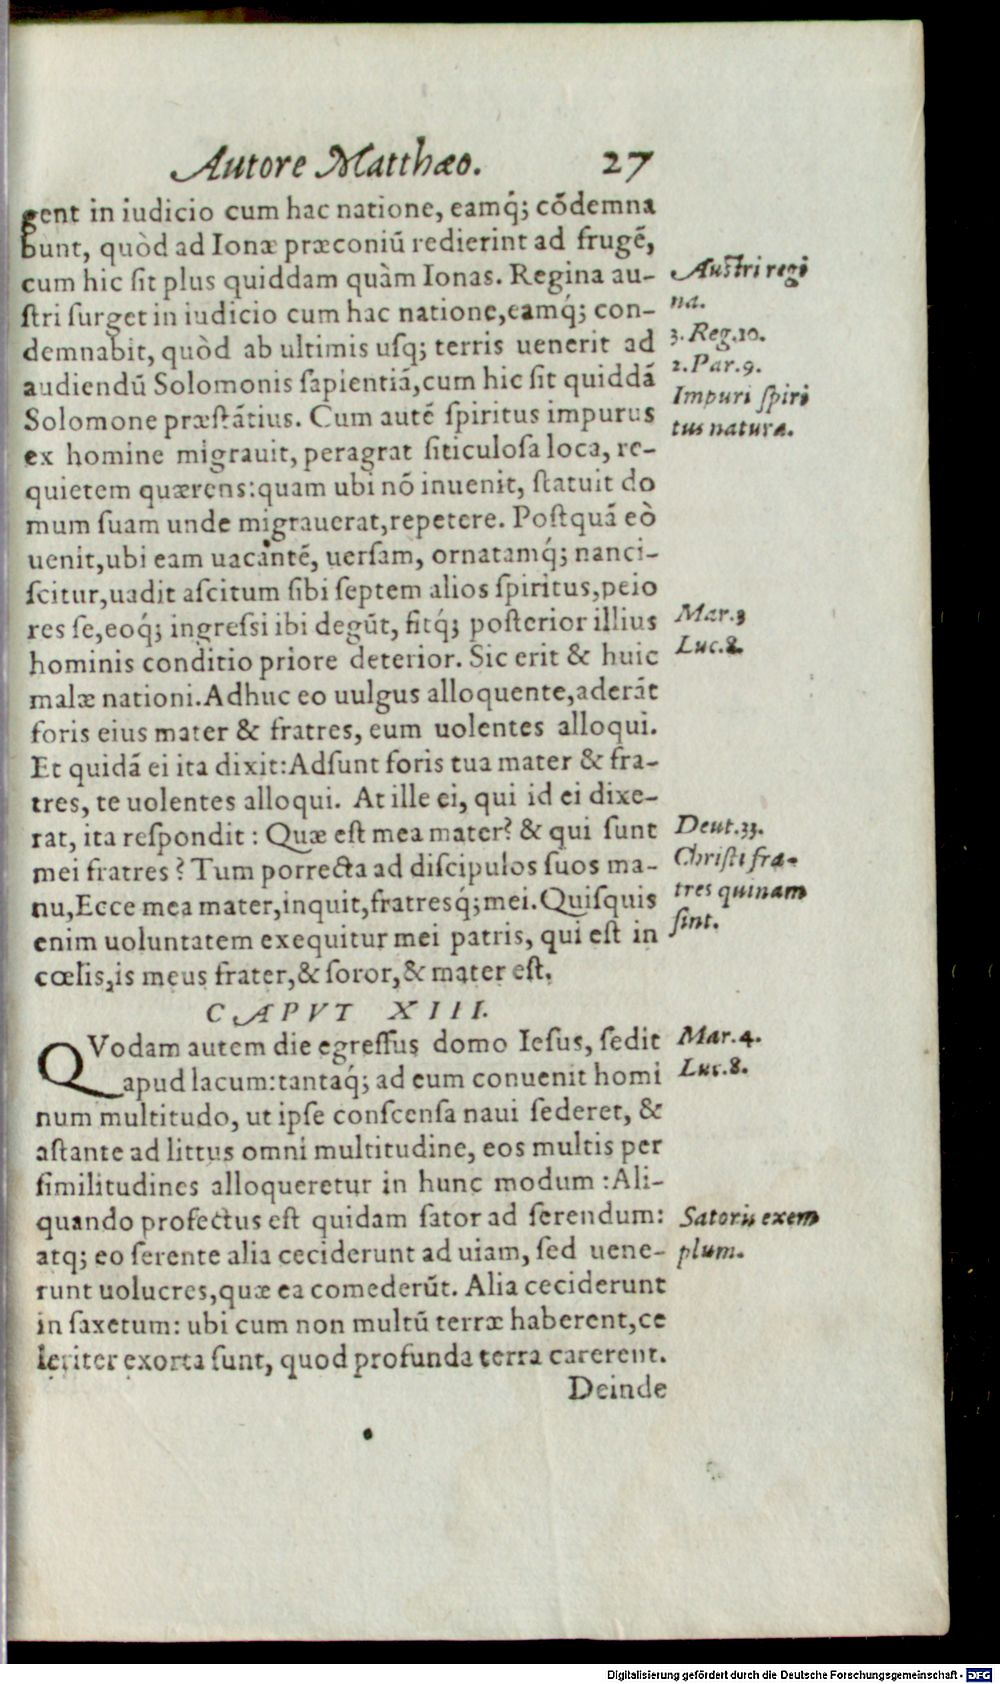 Autore Matthæo. 27
gent in iudicio cum hac natione, eamq́; cõdemna
bunt, quòd ad Ionæ præconiũ redierint ad frugẽ,
cum hic sit plus quiddam quàm Ionas. Regina au-
stri surget in iudicio cum hac natione, eamq́; con-
demnabit, quòd ab ultimis usq; terris uenerit ad
audiendũ Solomonis sapientiã, cum hic sit quiddã
Solomone præstãtius. Cum autẽ spiritus impurus
ex homine migrauit, peragrat siticulosa loca, re-
quietem quærens: quam ubi nõ inuenit, statuit do
mum suam unde migrauerat, repetere. Postquã eò
uenit, ubi eam uacantẽ, uersam, ornatamq́; nanci-
scitur, uadit ascitum sibi septem alios spiritus, peio
res se, eoq́; ingressi ibi degũt, fitq́; posterior illius
hominis conditio priore deterior. Sic erit & huic
malæ nationi. Adhuc eo uulgus alloquente, aderãt
foris eius mater & fratres, eum uolentes alloqui.
Et quidã ei ita dixit: Adsunt foris tua mater & fra-
tres, te uolentes alloqui. At ille ei, qui id ei dixe-
rat, ita respondit: Quæ est mea mater? & qui sunt
mei fratres? Tum porrecta ad discipulos suos ma-
nu, Ecce mea mater, inquit, fratresq́; mei. Quisquis
enim uoluntatem exequitur mei patris, qui est in
cœlis, is meus frater, & soror, & mater est.
CAPVT XIII.
QVodam autem die egressus domo Iesus, sedit
apud lacum: tantaq́; ad eum conuenit homi
num multitudo, ut ipse conscensa naui sederet, &
astante ad littus omni multitudine, eos multis per
similitudines alloqueretur in hunc modum: Ali-
quando profectus est quidam sator ad serendum:
atq; eo serente alia ceciderunt ad uiam, sed uene-
runt uolucres, quæ ea comederũt. Alia ceciderunt
in saxetum: ubi cum non multũ terræ haberent, ce
leriter exorta sunt, quod profunda terra carerent.
Deinde
Austri regi
na.
3. Reg. 10.
2. Par. 9.
Impuri spiri
tus natura.
Mar. 3
Luc. 8.
Deut. 33.
Christi fra-
tres quinam
sint.
Mar. 4.
Luc. 8.
Satoris exem
plum.
Digitalisierung gefördert durch die Deutsche Forschungsgemeinschaft - DFG